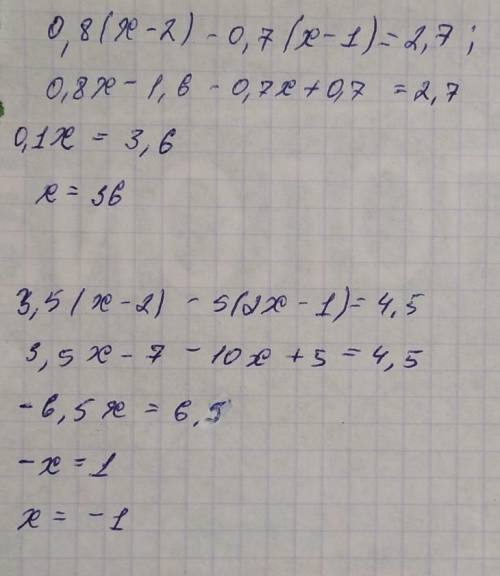 0,8(x-2) - 0,7(x-1)=2,7;
0,8x-1,6 - 0,7x+0,7 = 2,7
0,1x = 3,6
x = 36
3,5(x-2) - 5(2x-1)=4,5
3,5x-7 - 10x+5=4,5
-6,5x = 6,5
-x=1
x= -1